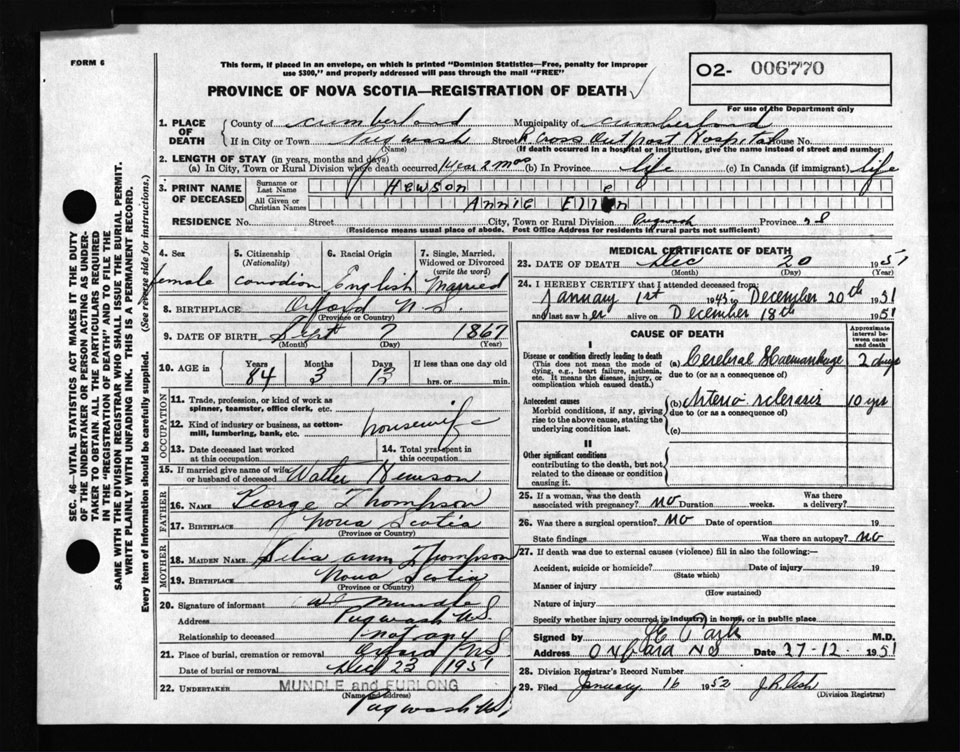 FORM 6
This form, if placed in an envelope, on which is printed "Dominion Statistics—Free, penalty for improper
use $300," and properly addressed will pass through the mail "FREE"
02- 006770
For use of the Department only
PROVINCE OF NOVA SCOTIA—REGISTRATION OF DEATH
1. PLACE OF DEATH
County of Cumberland Municipality of Cumberland
If in City or Town Pugwash Street R Cross Outpost Hospital House No.
(Name) (If death occurred in a hospital or institution, give the name instead of street and number)
2. LENGTH OF STAY (in years, months and days)
(a) In City, Town or Rural Division where death occurred 2 mos (b) In Province life (c) In Canada (if immigrant) life
3. PRINT NAME OF DECEASED
Surname or Last Name Hewson e
All Given or Christian Names ANNIE Ellen
RESIDENCE No. Street City, Town or Rural Division Pugwash Province NS
(Residence means usual place of abode. Post Office Address for residents in rural parts not sufficient)
4. Sex female
5. Citizenship (Nationality) Canadian
6. Racial Origin English
7. Single, Married, Widowed or Divorced (write the word) Married
8. BIRTHPLACE Oxford N.S.
(Province or Country)
9. DATE OF BIRTH Sept 7 1867
(Month) (Day) (Year)
10. AGE in Years 84 Months 3 Days 13 If less than one day old hrs. or min.
OCCUPATION
11. Trade, profession, or kind of work as spinner, teamster, office clerk, etc.
12. Kind of industry or business, as cotton-mill, lumbering, bank, etc. housewife
13. Date deceased last worked at this occupation
14. Total yrs. spent in this occupation
15. If married give name of wife or husband of deceased Walter Hewson
FATHER
16. NAME George Thompson
17. BIRTHPLACE Nova Scotia
(Province or Country)
MOTHER
18. MAIDEN NAME Delia ann Thompson
19. BIRTHPLACE Nova Scotia
(Province or Country)
20. Signature of informant Mundle
Address Pugwash NS
Relationship to deceased not any
21. Place of burial, cremation or removal Oxford NS
Date of burial or removal Dec 23 1951
22. UNDERTAKER MUNDLE and FURLONG
(Name and address)
Pugwash NS
MEDICAL CERTIFICATE OF DEATH
23. DATE OF DEATH Dec 20 1951
(Month) (Day) (Year)
24. I HEREBY CERTIFY that I attended deceased from:
January 1st 1943 to December 20th 1951
and last saw her alive on December 18th 1951
CAUSE OF DEATH
Approximate interval between onset and death
I
Disease or condition directly leading to death
(This does not mean the mode of dying, e.g., heart failure, asthenia, etc. It means the disease, injury, or complication which caused death.)
(a) Cerebral Haemorrhage 2 days
due to (or as a consequence of)
Antecedent causes
Morbid conditions, if any, giving rise to the above cause, stating the underlying condition last.
(b) Arterio sclerosis 10 yrs
due to (or as a consequence of)
(c)
II
Other significant conditions
contributing to the death, but not related to the disease or condition causing it.
25. If a woman, was the death associated with pregnancy? no Duration weeks. Was there a delivery?
26. Was there a surgical operation? no Date of operation 19
State findings Was there an autopsy? no
27. If death was due to external causes (violence) fill in also the following:
Accident, suicide or homicide? Date of injury 19
(State which)
Manner of injury
(How sustained)
Nature of injury
Specify whether injury occurred in industry, in home, or in public place
Signed by M.D.
Address Oxford NS Date 27-12- 1951
28. Division Registrar's Record Number
29. Filed January 16 1952
(Division Registrar)
SEC. 46—VITAL STATISTICS ACT MAKES IT THE DUTY
OF THE UNDERTAKER OR PERSON ACTING AS UNDER-
TAKER TO OBTAIN ALL THE PARTICULARS REQUIRED
IN THE "REGISTRATION OF DEATH" AND TO FILE THE
SAME WITH THE DIVISION REGISTRAR WHO SHALL ISSUE THE BURIAL PERMIT.
WRITE PLAINLY WITH UNFADING INK. THIS IS A PERMANENT RECORD.
Every item of information should be carefully supplied. (See reverse side for instructions.)